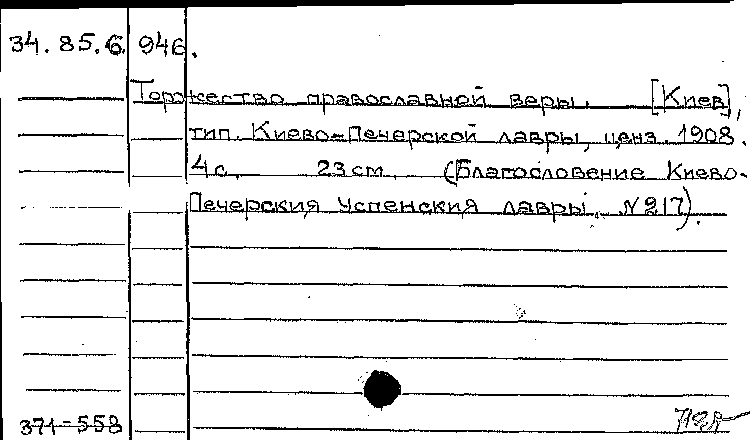 34.85.6 946.
Торжество православной веры. [Киев],
тип. Киево-Печерской лавры, ценз. 1908.
4 с. 23 см. (Благословение Киево-
Печерския Успенския лавры, № 217).
371-558